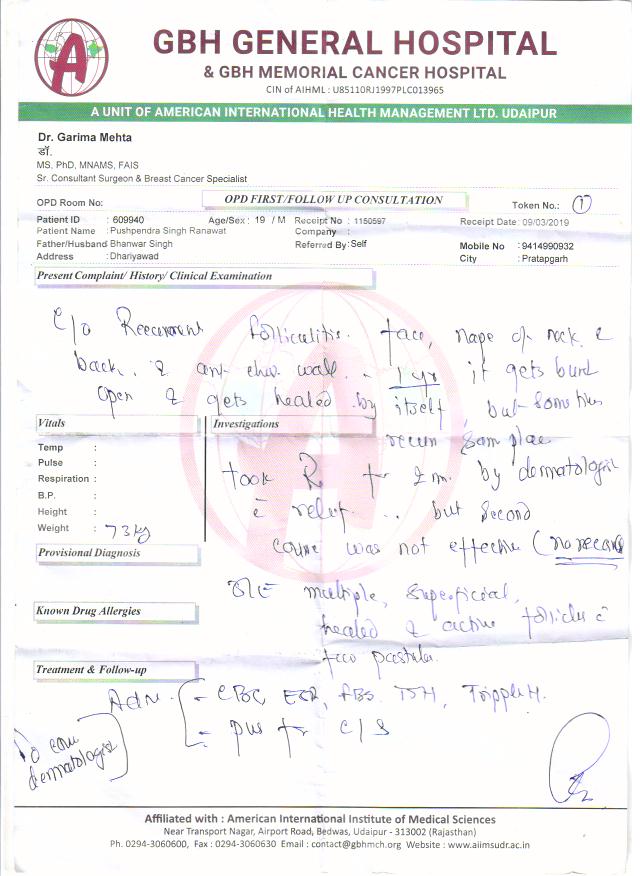 GBH GENERAL HOSPITAL
& GBH MEMORIAL CANCER HOSPITAL
CIN of AIHML : U85110RJ1997PLC013965
A UNIT OF AMERICAN INTERNATIONAL HEALTH MANAGEMENT LTD. UDAIPUR
Dr. Garima Mehta
डॉ.
MS, PhD, MNAMS, FAIS
Sr. Consultant Surgeon & Breast Cancer Specialist
OPD Room No: OPD FIRST/FOLLOW UP CONSULTATION Token No.: 1
Patient ID : 609940 Age/Sex : 19 / M Receipt No : 1150597 Receipt Date : 09/03/2019
Patient Name : Pushpendra Singh Ranawat Company :
Father/Husband Bhanwar Singh Referred By : Self Mobile No : 9414990932
Address : Dhariyawad City : Pratapgarh
Present Complaint/ History/ Clinical Examination
C/o Recurrent folliculitis. face, nape of neck &
back, & chest wall. - 1 yr it gets burst
open & gets healed by itself, but sometimes
Vitals Investigations
recurr same place
Temp :
Pulse :
Respiration :
B.P. :
Height :
Weight : 73 kg
took R for 2 m. by dermatologist
c relief ... but second
course was not effective (no record
Provisional Diagnosis
O/E multiple, superficial,
healed & active follicles c
few pustules.
Known Drug Allergies
Treatment & Follow-up
Adv. - CBC, ESR, FBS, TSH, Tripple H.
- pus for C/S
To con
dermatologist
Affiliated with : American International Institute of Medical Sciences
Near Transport Nagar, Airport Road, Bedwas, Udaipur - 313002 (Rajasthan)
Ph. 0294-3060600, Fax : 0294-3060630 Email : contact@gbhmch.org Website : www.aiimsudr.ac.in